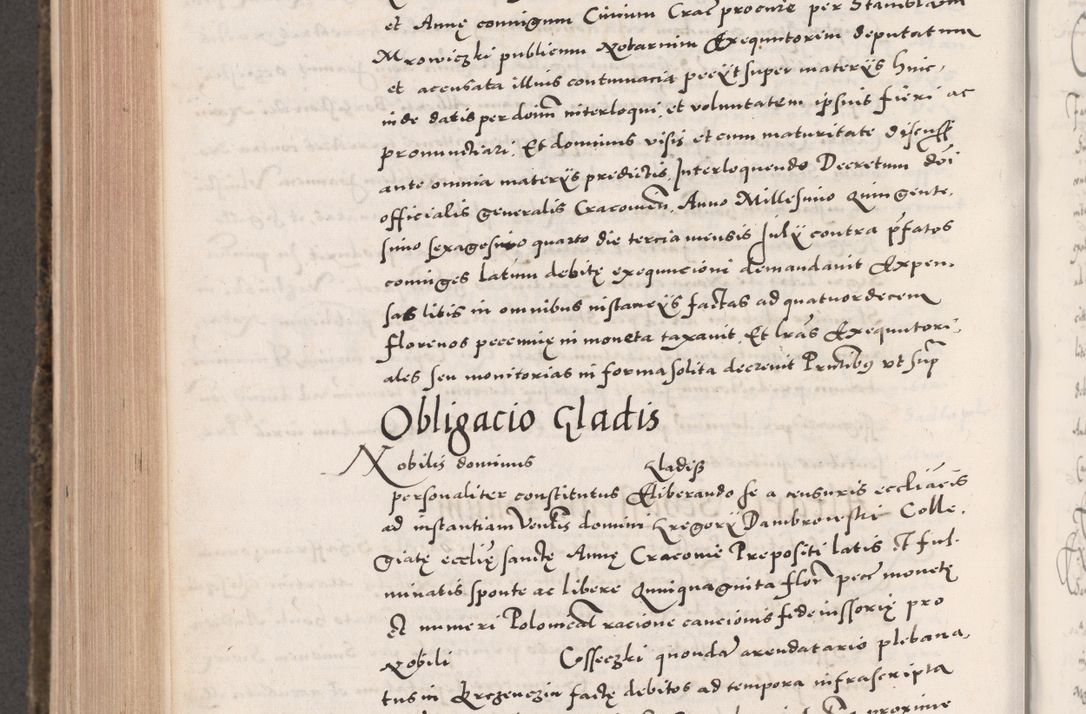 et Annę coniugum Civium Crac procure per Stanislaum
Mrowiczki publicum Notarium Exequutorem deputatum
et accusata illius contumacia peciit super materiis huic,
inde datis per domin interloqui, et voluntatem ipsius fieri ac
pronunctiari. Et dominus visis et cum maturitate discussis
ante omnia materiis predictis, Interloquendo Decretum doi
officialis generalis Cracovien, Anno Millesimo Quingente,
simo sexagesimo quarto die tercia mensis Julii contra pfatos
coniuges latum debitę exequucioni demandavit Expen,
sas litis in omnibus instanciis factas ad quatuordecem
florenos pecunię in moneta taxavit, Et lras Exequutori,
ales seu monitorias in forma solita decrevit Pntibus ut sup
Obligacio Gladis
Nobilis dominus Gladisz
personaliter constitutus Eliberando se a censuris eccliacis
ad instantiam Venlis domini Gregorii Dambrowski Colle,
giatę ecclię sanctę Annę Cracovię Prepositi latis et ful,
minatis sponte ac libere Quinquaginta flor pecc monetę
Et numeri Polonical racione caucionis fideiussorię pro
Nobili Cosseczki quonda arendatario plebana,
tus in Krczenczin factę debitos ad tempora infrascripta
proxime